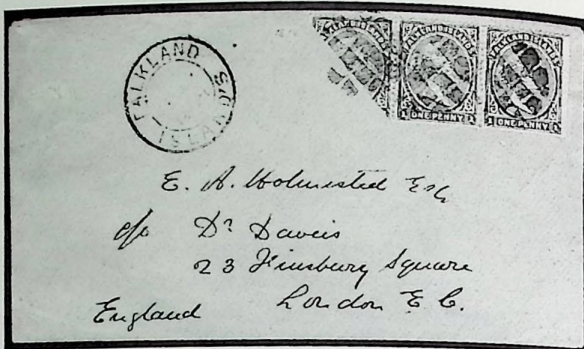 FALKLAND ISLANDS
FALKLAND ISLANDS
FALKLAND ISLANDS
1 ONE PENNY 1
1 ONE PENNY 1
E. A. Holmested Esq
c/o Dr Davies
23 Finsbury Square
London E C.
England